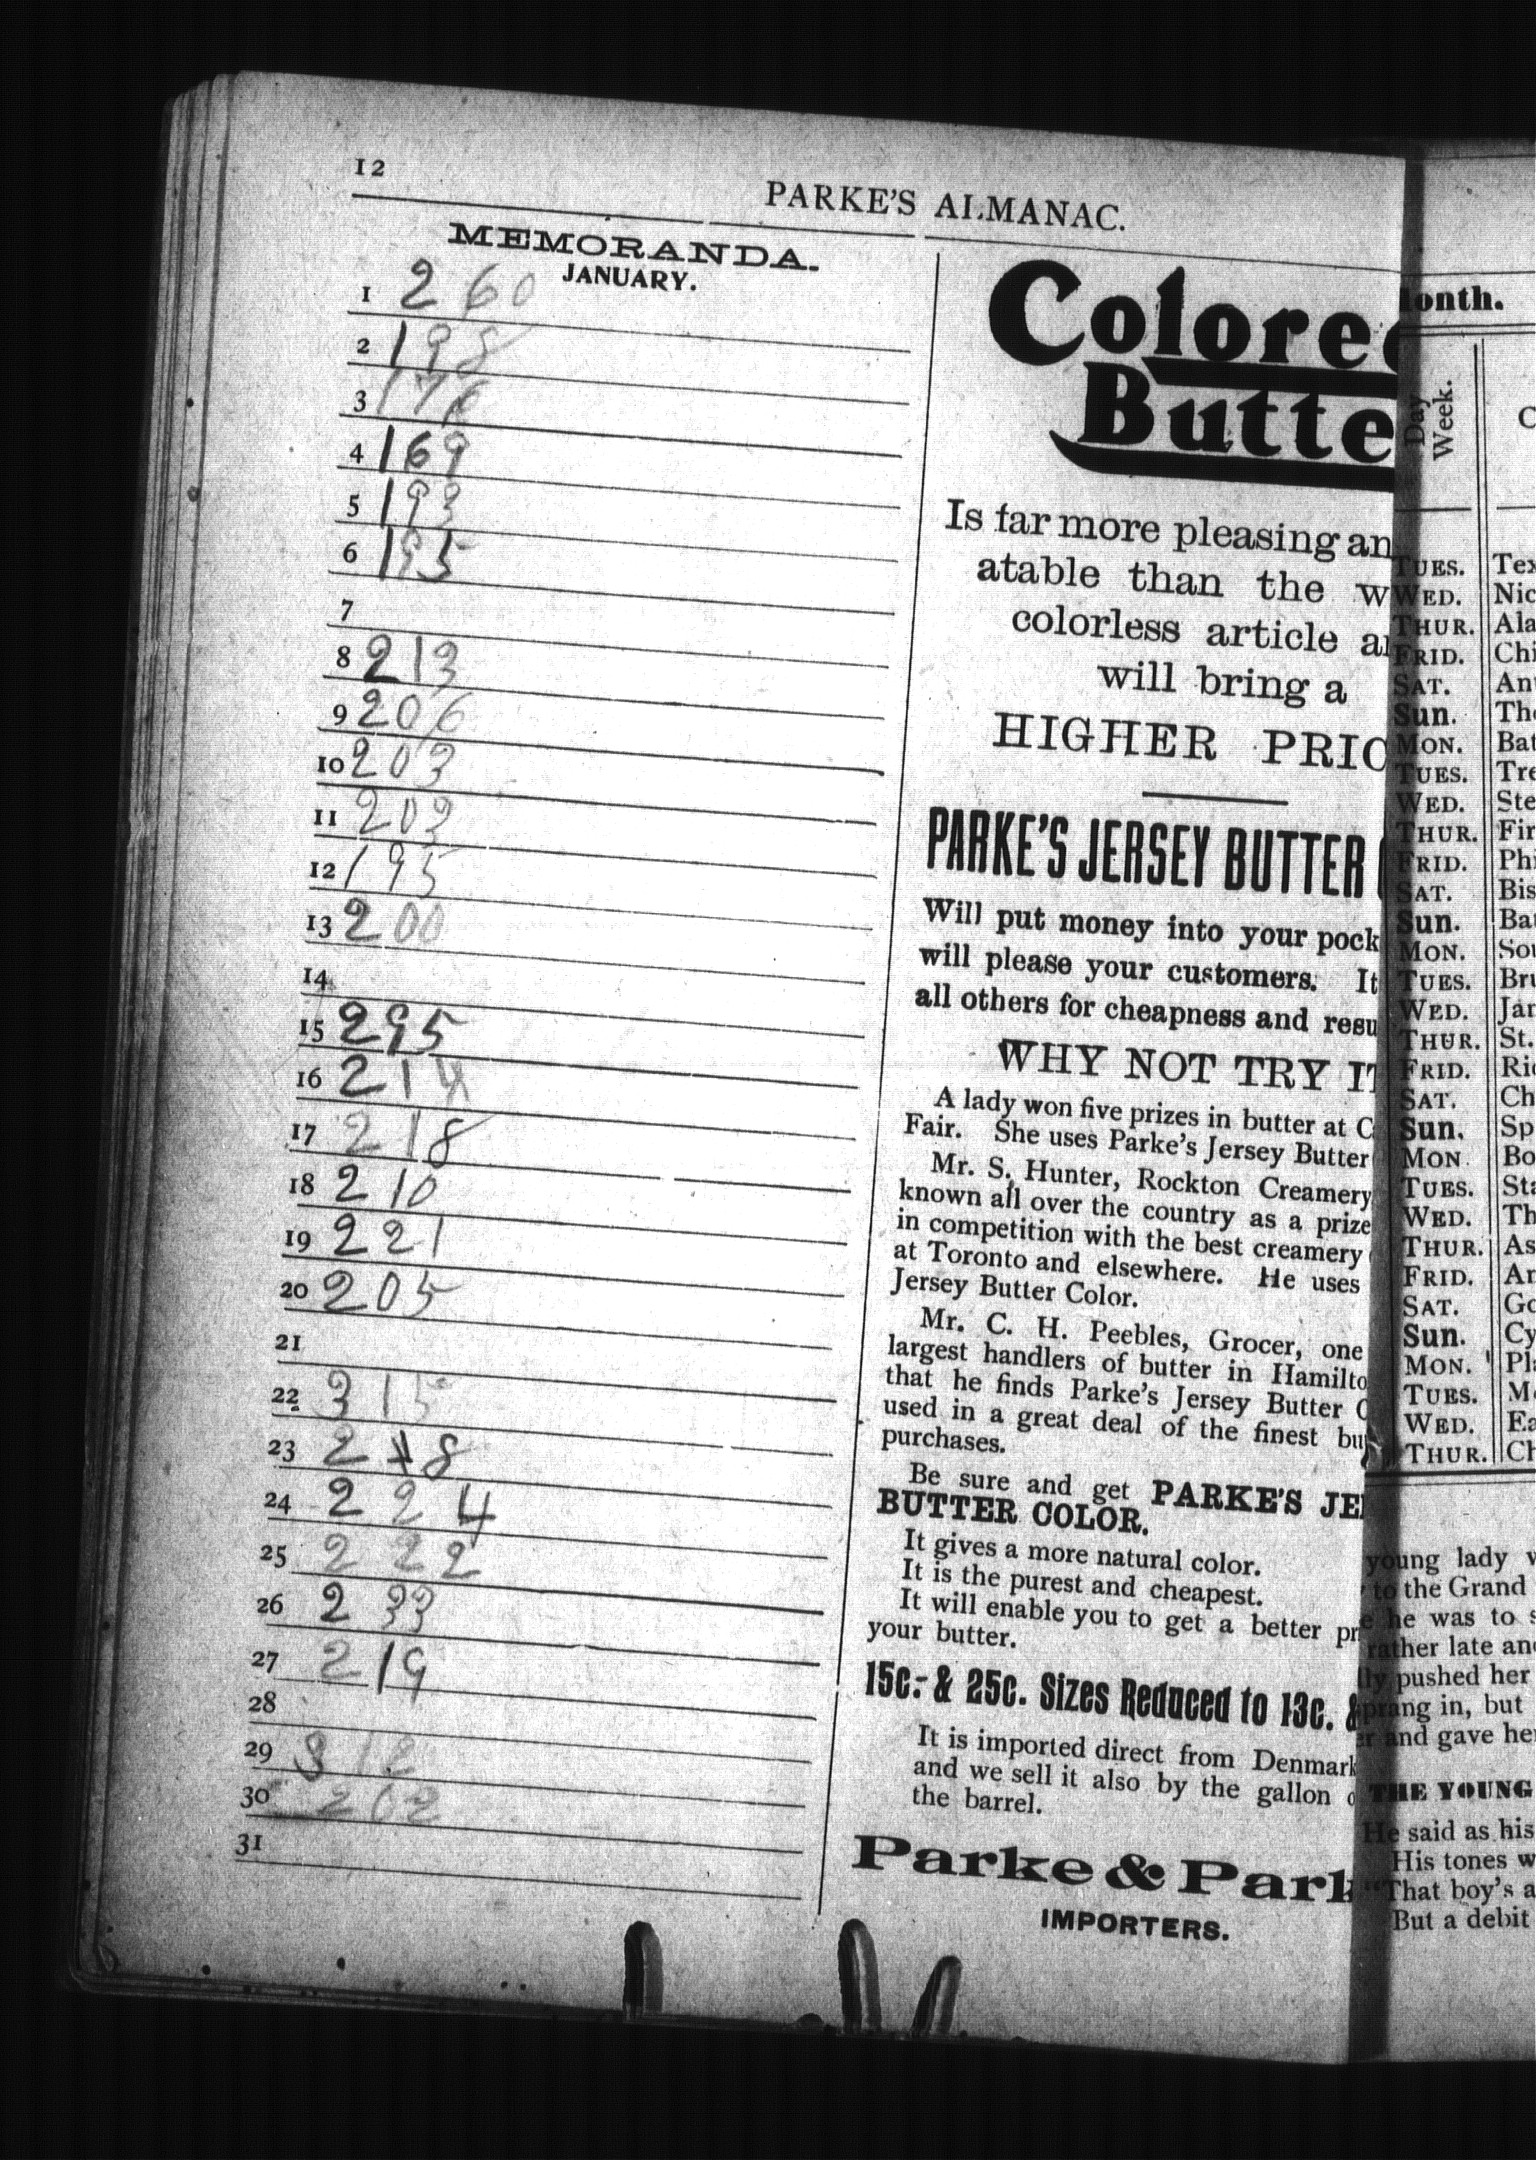 12
PARKE'S ALMANAC.
MEMORANDA.
JANUARY.
1 260
2 198
3 176
4 169
5 193
6 195
7
8 213
9 206
10 203
11 203
12 195
13 200
14
15 295
16 214
17 218
18 210
19 221
20 205
21
22 315
23 218
24 224
25 222
26 233
27 219
28
29 312
30 202
31
Colored
Butte
Is far more pleasing an
atable than the w
colorless article a
will bring a
HIGHER PRIC
PARKE'S JERSEY BUTTER
Will put money into your pock
will please your customers. It
all others for cheapness and resu
WHY NOT TRY IT
A lady won five prizes in butter at C
Fair. She uses Parke's Jersey Butter
Mr. S. Hunter, Rockton Creamery
known all over the country as a prize
in competition with the best creamery
at Toronto and elsewhere. He uses
Jersey Butter Color.
Mr. C. H. Peebles, Grocer, one
largest handlers of butter in Hamilto
that he finds Parke's Jersey Butter C
used in a great deal of the finest bu
purchases.
Be sure and get PARKE'S JE
BUTTER COLOR.
It gives a more natural color.
It is the purest and cheapest.
It will enable you to get a better pr
your butter.
15c. & 25c. Sizes Reduced to 13c. &
It is imported direct from Denmark
and we sell it also by the gallon o
the barrel.
Parke & Park
IMPORTERS.
Month.
Day
Week.
C
TUES. Tex
WED. Nic
THUR. Ala
FRID. Chi
SAT. An
Sun. Th
MON. Bat
TUES. Tre
WED. Ste
THUR. Fir
FRID. Phi
SAT. Bis
Sun. Bat
MON. Sou
TUES. Bru
WED. Jan
THUR. St.
FRID. Ric
SAT. Ch
Sun. Sp
MON. Bo
TUES. Sta
WED. Th
THUR. As
FRID. Ar
SAT. Go
Sun. Cy
MON. Pla
TUES. Mo
WED. Ea
THUR. Ch
young lady w
to the Grand
he was to s
rather late and
ly pushed her
sprang in, but
er and gave her
THE YOUNG
He said as his
His tones w
"That boy's a
But a debit